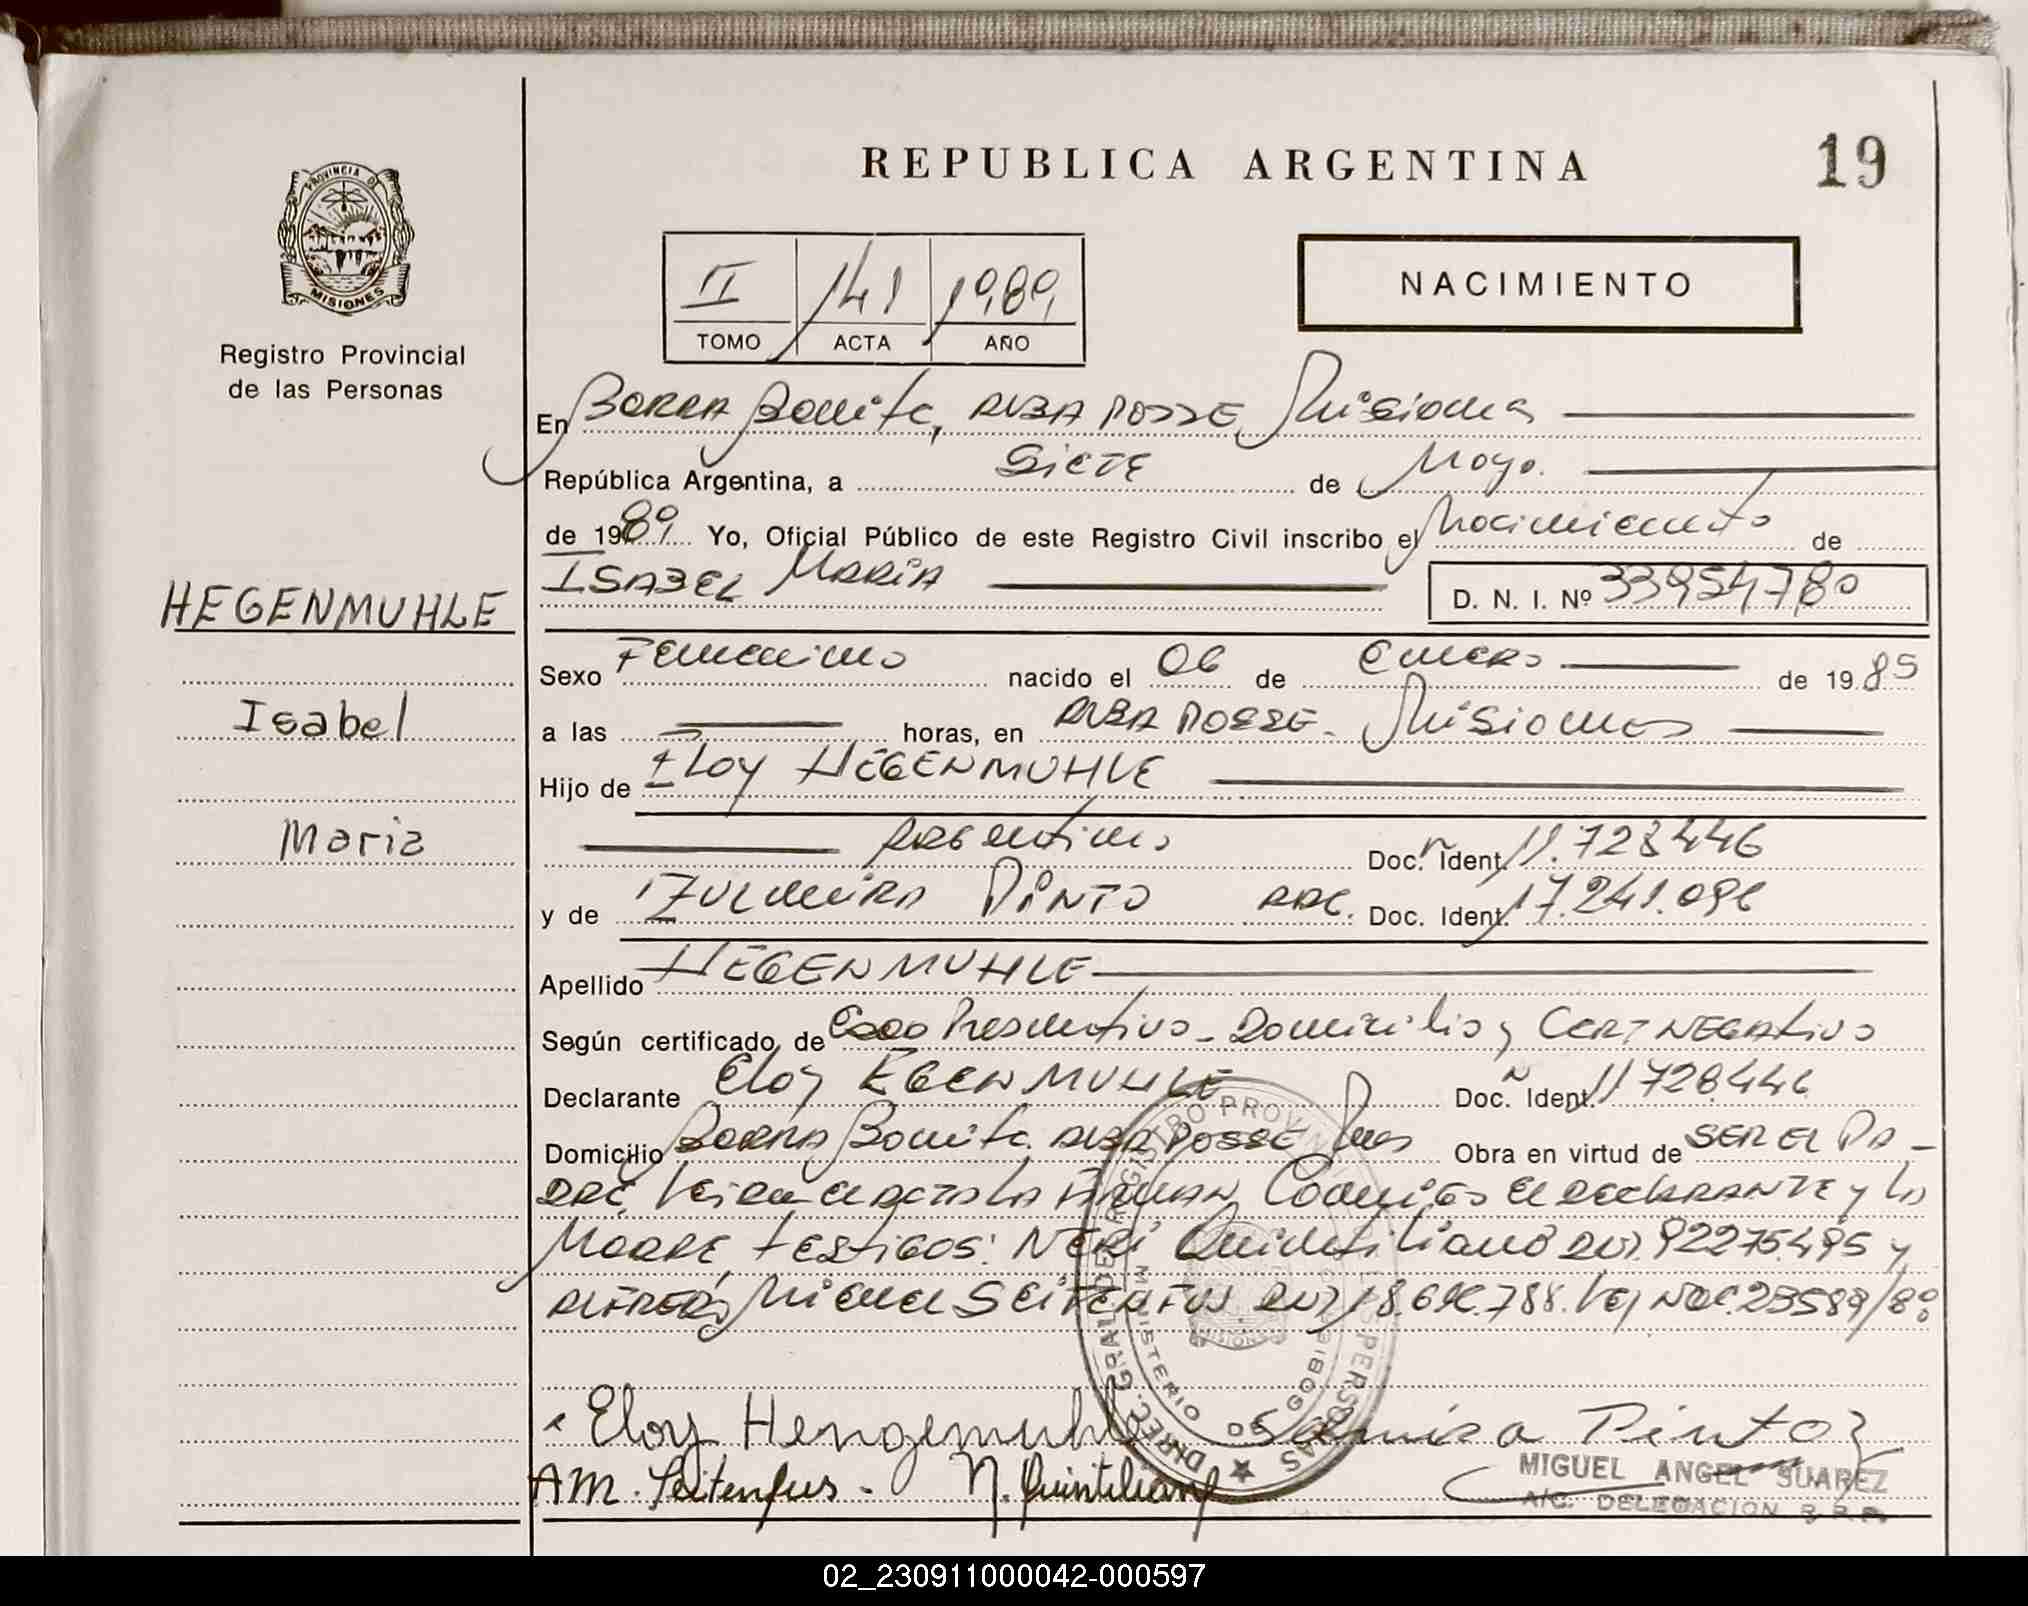 REPUBLICA ARGENTINA
19
PROVINCIA D
MISIONES
Registro Provincial
de las Personas
II 141 1989
TOMO ACTA AÑO
NACIMIENTO
En Borra Bonita, ALBA POSSE, Misiones
República Argentina, a SieTE de Mayo.
de 1989 Yo, Oficial Público de este Registro Civil inscribo el Nacimiento de
ISABEL MARIA
D. N. I. Nº 33954780
HEGENMUHLE
Isabel
Maria
Sexo Femenino nacido el 06 de Enero de 1985
a las horas, en ALBA POSSE - Misiones
Hijo de Eloy HEGENMUHLE
Argentino Doc. Ident. 11.728446
y de ZULMIRA PINTO ARG. Doc. Ident. 17.241.096
Apellido HEGENMUHLE
Según certificado de Presuntivo - Domicilio y CERT NEGAtivo
Declarante Eloy EGENMUHLE Doc. Ident. 11728446
Domicilio BORRA Bonita. ALBA POSSE Mnes Obra en virtud de SER EL PA-
DRE, el ACTA LA FIRMAN Conmigo el DECLARANTE y LA
MADRE, tEStiGOS: NERI Quintiliano DNI. 92275495 y
ALFREDO Miguel SEITENFUS DNI 18.696.788. 23589/89
Eloy Hengemuhle Samira Pinto
AM. Seitenfus - N. Quintiliano
MIGUEL ANGEL SUAREZ
A/C. DELEGACION R.P.P.
DIREC. GRAL. DE REGISTRO PROVINCIAL DE LAS PERSONAS
MINISTERIO DE GOBIERNO
02_230911000042-000597